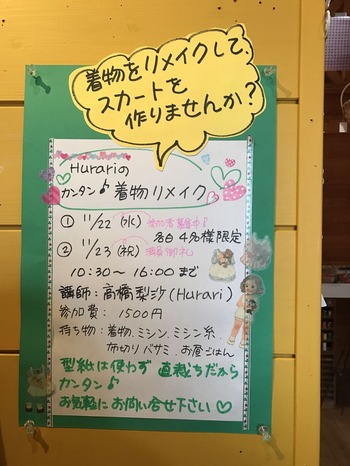 着物をリメイクして、
スカートを
作りませんか?
Hurariの
カンタン♪着物リメイク
① 11/22 (水) 参加者募集中♪
各日4名様限定
② 11/23 (祝) 満員御礼
10:30〜16:00まで
講師:高橋梨沙(Hurari)
参加費:1500円
持ち物:着物、ミシン、ミシン糸、
布切りバサミ、お昼ごはん
型紙は使わず 直裁ちだから
カンタン♪
お気軽にお問い合せ下さい♡